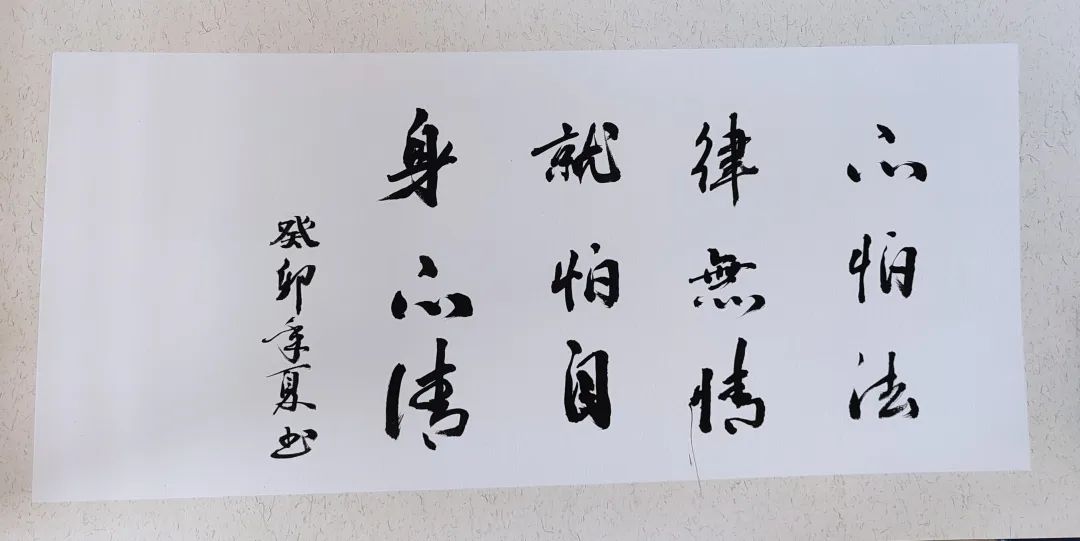 不怕法
律無情
就怕自
身不清
癸卯年夏书